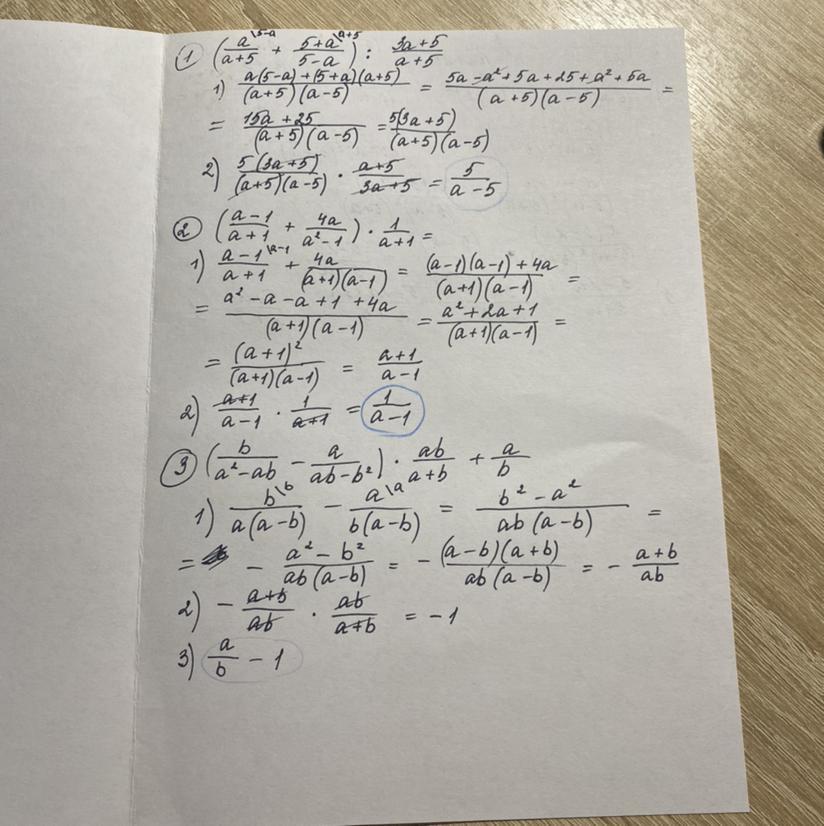 ① (a/(a+5) \5-a + (5+a)/(5-a) \a+5) : (3a+5)/(a+5)
1) (a(5-a)+(5+a)(a+5))/((a+5)(a-5)) = (5a-a²+5a+25+a²+5a)/((a+5)(a-5)) =
= (15a+25)/((a+5)(a-5)) = 5(3a+5)/((a+5)(a-5))
2) 5(3a+5)/((a+5)(a-5)) · (a+5)/(3a+5) = 5/(a-5)
② ((a-1)/(a+1) + 4a/(a²-1)) · 1/(a+1) =
1) (a-1)/(a+1) \a-1 + 4a/((a+1)(a-1)) = ((a-1)(a-1)+4a)/((a+1)(a-1)) =
= (a²-a-a+1+4a)/((a+1)(a-1)) = (a²+2a+1)/((a+1)(a-1)) =
= (a+1)²/((a+1)(a-1)) = (a+1)/(a-1)
2) (a+1)/(a-1) · 1/(a+1) = 1/(a-1)
③ (b/(a²-ab) - a/(ab-b²)) · ab/(a+b) + a/b
1) b/(a(a-b)) \b - a/(b(a-b)) \a = (b²-a²)/(ab(a-b)) =
= - (a²-b²)/(ab(a-b)) = - (a-b)(a+b)/(ab(a-b)) = - (a+b)/ab
2) - (a+b)/ab · ab/(a+b) = -1
3) a/b - 1